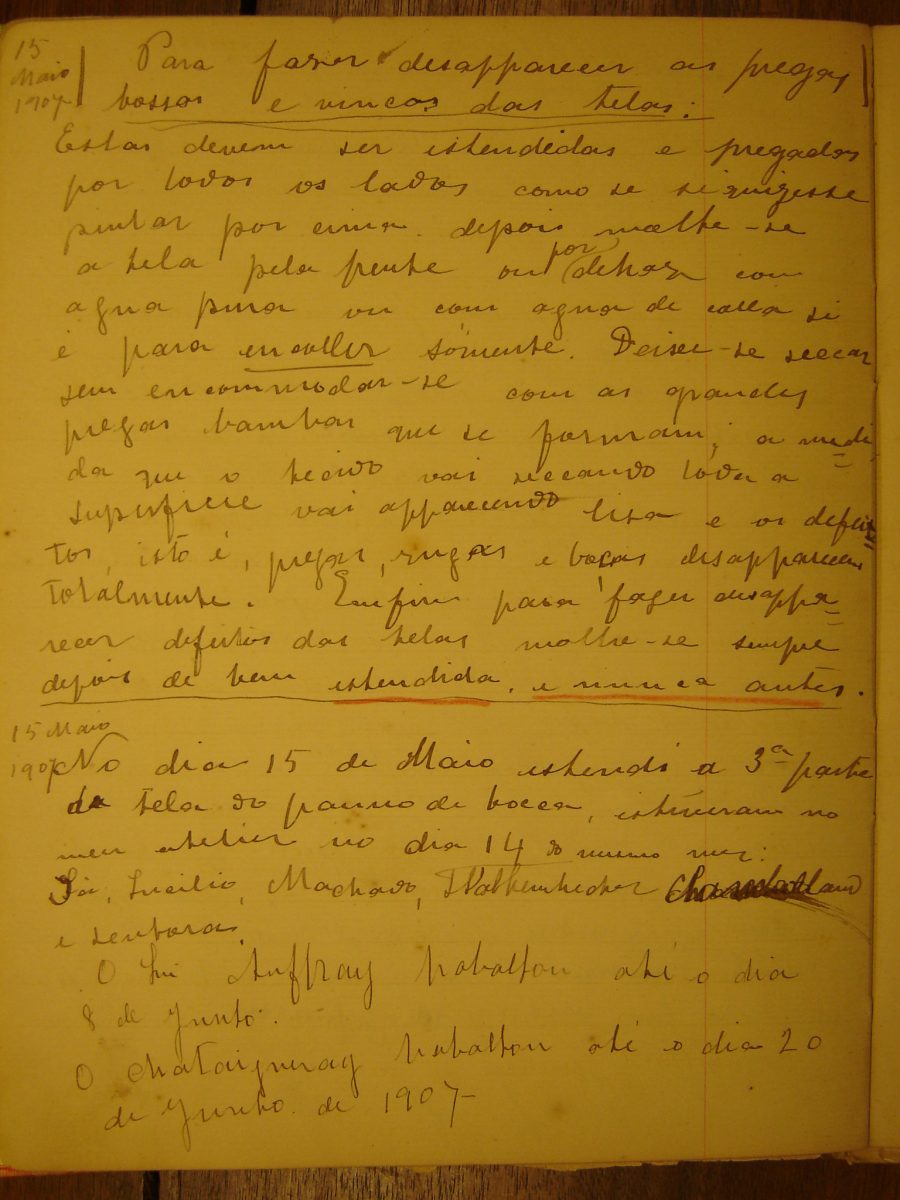 15
Maio
1907
Para fazer desapparecer as pregas
bossas e vincos das telas:
Estas devem ser estendidas e pregadas
por todos os lados como se se quizesse
pintar por cima. depois molhe-se
a tela pela frente ou por detraz com
agua pura ou com agua de colla si
é para encoller sómente. Deixe-se seccar
sem encommodar-se com as grandes
pregas bambas que se formram; a medi
da que o tecido vai seccando tóda a
superficie vai apparecendo lisa e os defei
tos, isto é, pregas, rugas e boças desapparecem
totalmente. Emfim para fazer desappa
recer defeitos das telas molhe-se sempre
depois de bem estendida. e nunca antes.
15 Maio
1907
No dia 15 de Maio estendi a 3ª parte
da tela do panno de bocca, estiveram no
meu atelier no dia 14 do mesmo mez:
Lucilio, Machado,
e senhora.
O Auffray trabalhou até o dia
8 de Junho.
O Chataigneray trabalhou até o dia 20
de Junho de 1907